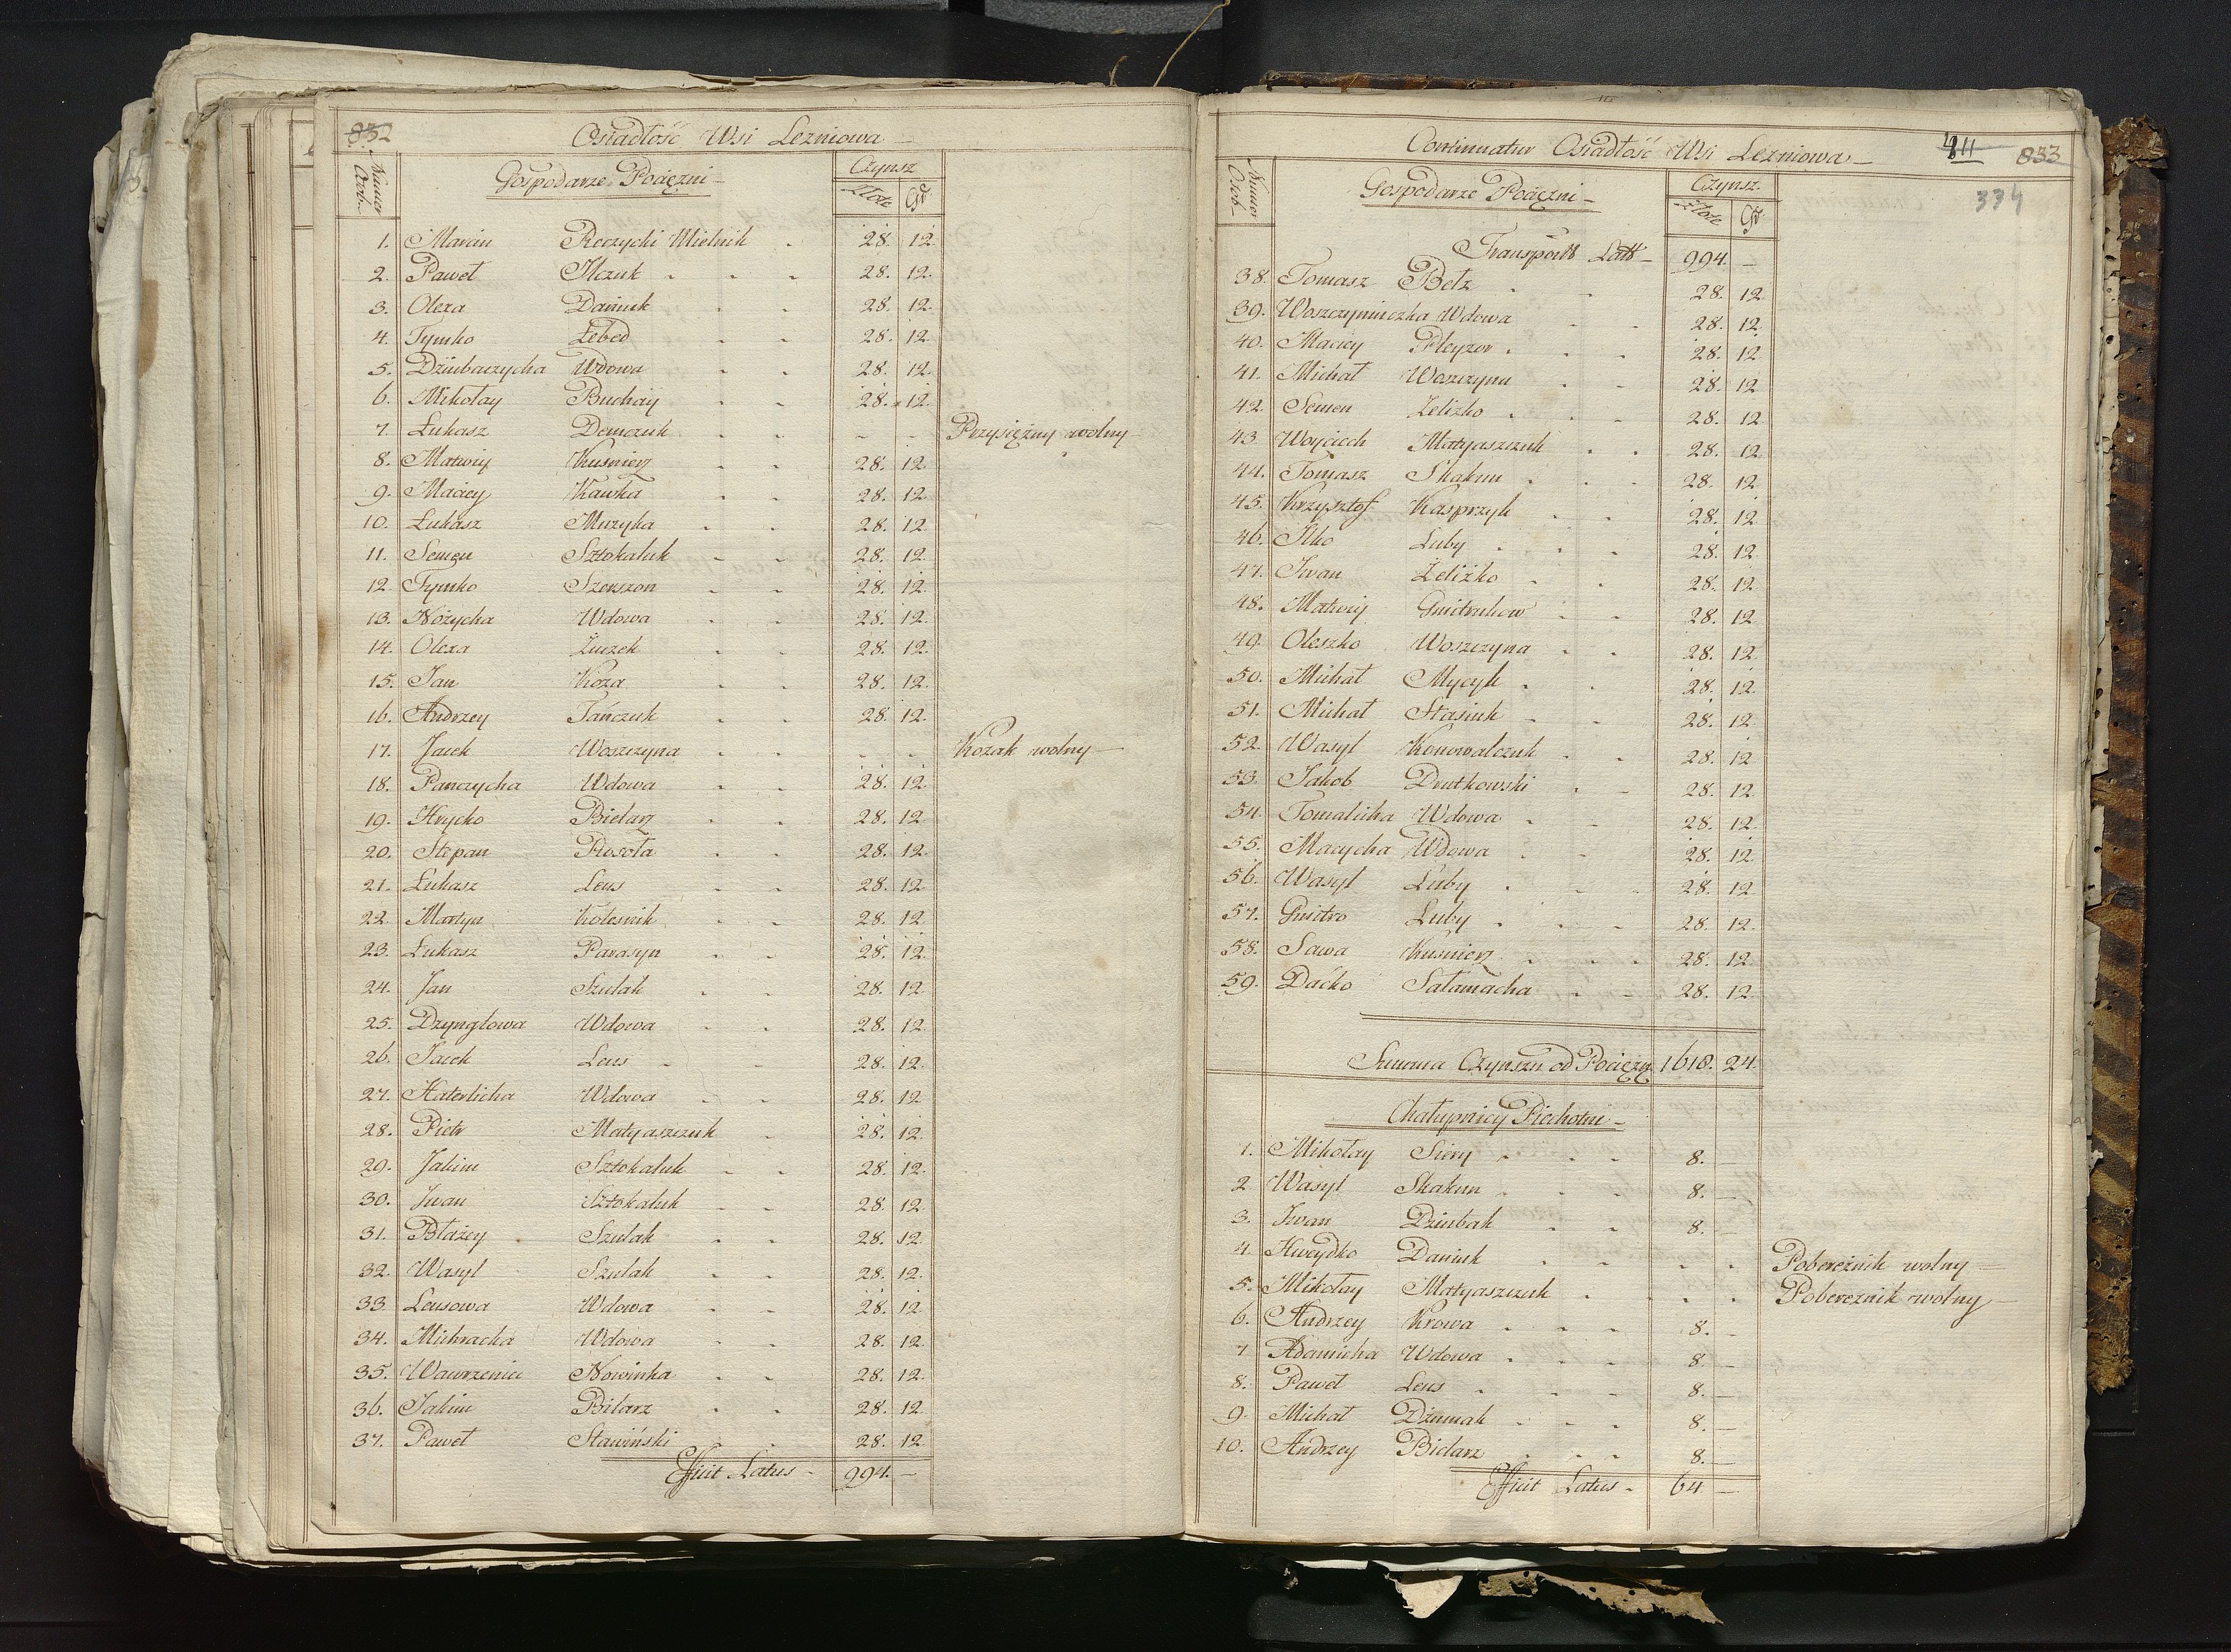 832
Osiadłość Wsi Lezniowa
Numer Osob.
Gospodarze Pociężni
Czynsz
Złote Gr.
1. Marcin Reczycki Mielnik 28. 12.
2. Paweł Ilczuk 28. 12.
3. Olexa Daniuk 28. 12.
4. Tymko Łebed 28. 12.
5. Dziubaczycha Wdowa 28. 12.
6. Mikołay Buchay 28. 12.
7. Łukasz Demczuk - - Przysiężny wolny
8. Matwiy Kusnierz 28. 12.
9. Maciey Kawka 28. 12.
10. Łukasz Muzyka 28. 12.
11. Semen Sztokaluk 28. 12.
12. Tymko Szerszon 28. 12.
13. Nożycha Wdowa 28. 12.
14. Olexa Zuczek 28. 12.
15. Jan Koza 28. 12.
16. Andrzey Jańczuk 28. 12.
17. Jacek Woszczyna - - Kozak wolny
18. Panczycha Wdowa 28. 12.
19. Hrycko Bielarz 28. 12.
20. Stepan Rosoła 28. 12.
21. Łukasz Leus 28. 12.
22. Martyn Kolesnik 28. 12.
23. Łukasz Parasyn 28. 12.
24. Jan Szulak 28. 12.
25. Dzynglowa Wdowa 28. 12.
26. Jacek Leus 28. 12.
27. Katerlicha Wdowa 28. 12.
28. Piotr Matyaszczuk 28. 12.
29. Jakim Sztokaluk 28. 12.
30. Iwan Sztokaluk 28. 12.
31. Błażey Szulak 28. 12.
32. Wasyl Szulak 28. 12.
33. Leusowa Wdowa 28. 12.
34. Michracka Wdowa 28. 12.
35. Wawrzeniec Nowinka 28. 12.
36. Jakim Bilarz 28. 12.
37. Paweł Sławiński 28. 12.
Efficit Latus - 994. -
Continuatur Osiadłość Wsi Lezniowa
833
334
Numer Osob.
Gospodarze Pociężni
Czynsz.
Złote Gr.
Transport Latt - 994. -
38. Tomasz Betz 28. 12.
39. Woszczyniczka Wdowa 28. 12.
40. Maciey Pleyzer 28. 12.
41. Michał Woszczyna 28. 12.
42. Semen Zelizko 28. 12.
43. Woyciech Matyaszczuk 28. 12.
44. Tomasz Skakun 28. 12.
45. Krzysztof Kasprzyk 28. 12.
46. Ilko Luby 28. 12.
47. Iwan Żeliżko 28. 12.
48. Matwiy Gmitrukow 28. 12.
49. Oleszko Woszczyna 28. 12.
50. Michał Mycyk 28. 12.
51. Michał Stasiuk 28. 12.
52. Wasyl Konowalczuk 28. 12.
53. Jakob Drutkowski 28. 12.
54. Tomalicha Wdowa 28. 12.
55. Macycha Wdowa 28. 12.
56. Wasyl Luby 28. 12.
57. Gmitro Luby 28. 12.
58. Sawa Kusnierz 28. 12.
59. Daćko Sałamacha 28. 12.
Summa Czynszu od Pociężn. 1618. 24.
Chałupnicy Piechotni
1. Mikołay Siery 8. -
2. Wasyl Skakun 8. -
3. Iwan Dziubak 8. -
4. Hweydko Daniuk - - Pobereźnik wolny
5. Mikołay Matyaszczuk - - Pobereźnik wolny
6. Andrzey Krowa 8. -
7. Adamicha Wdowa 8. -
8. Paweł Leus 8. -
9. Michał Dżumak 8. -
10. Andrzey Bielarz 8. -
Efficit Latus - 64 -